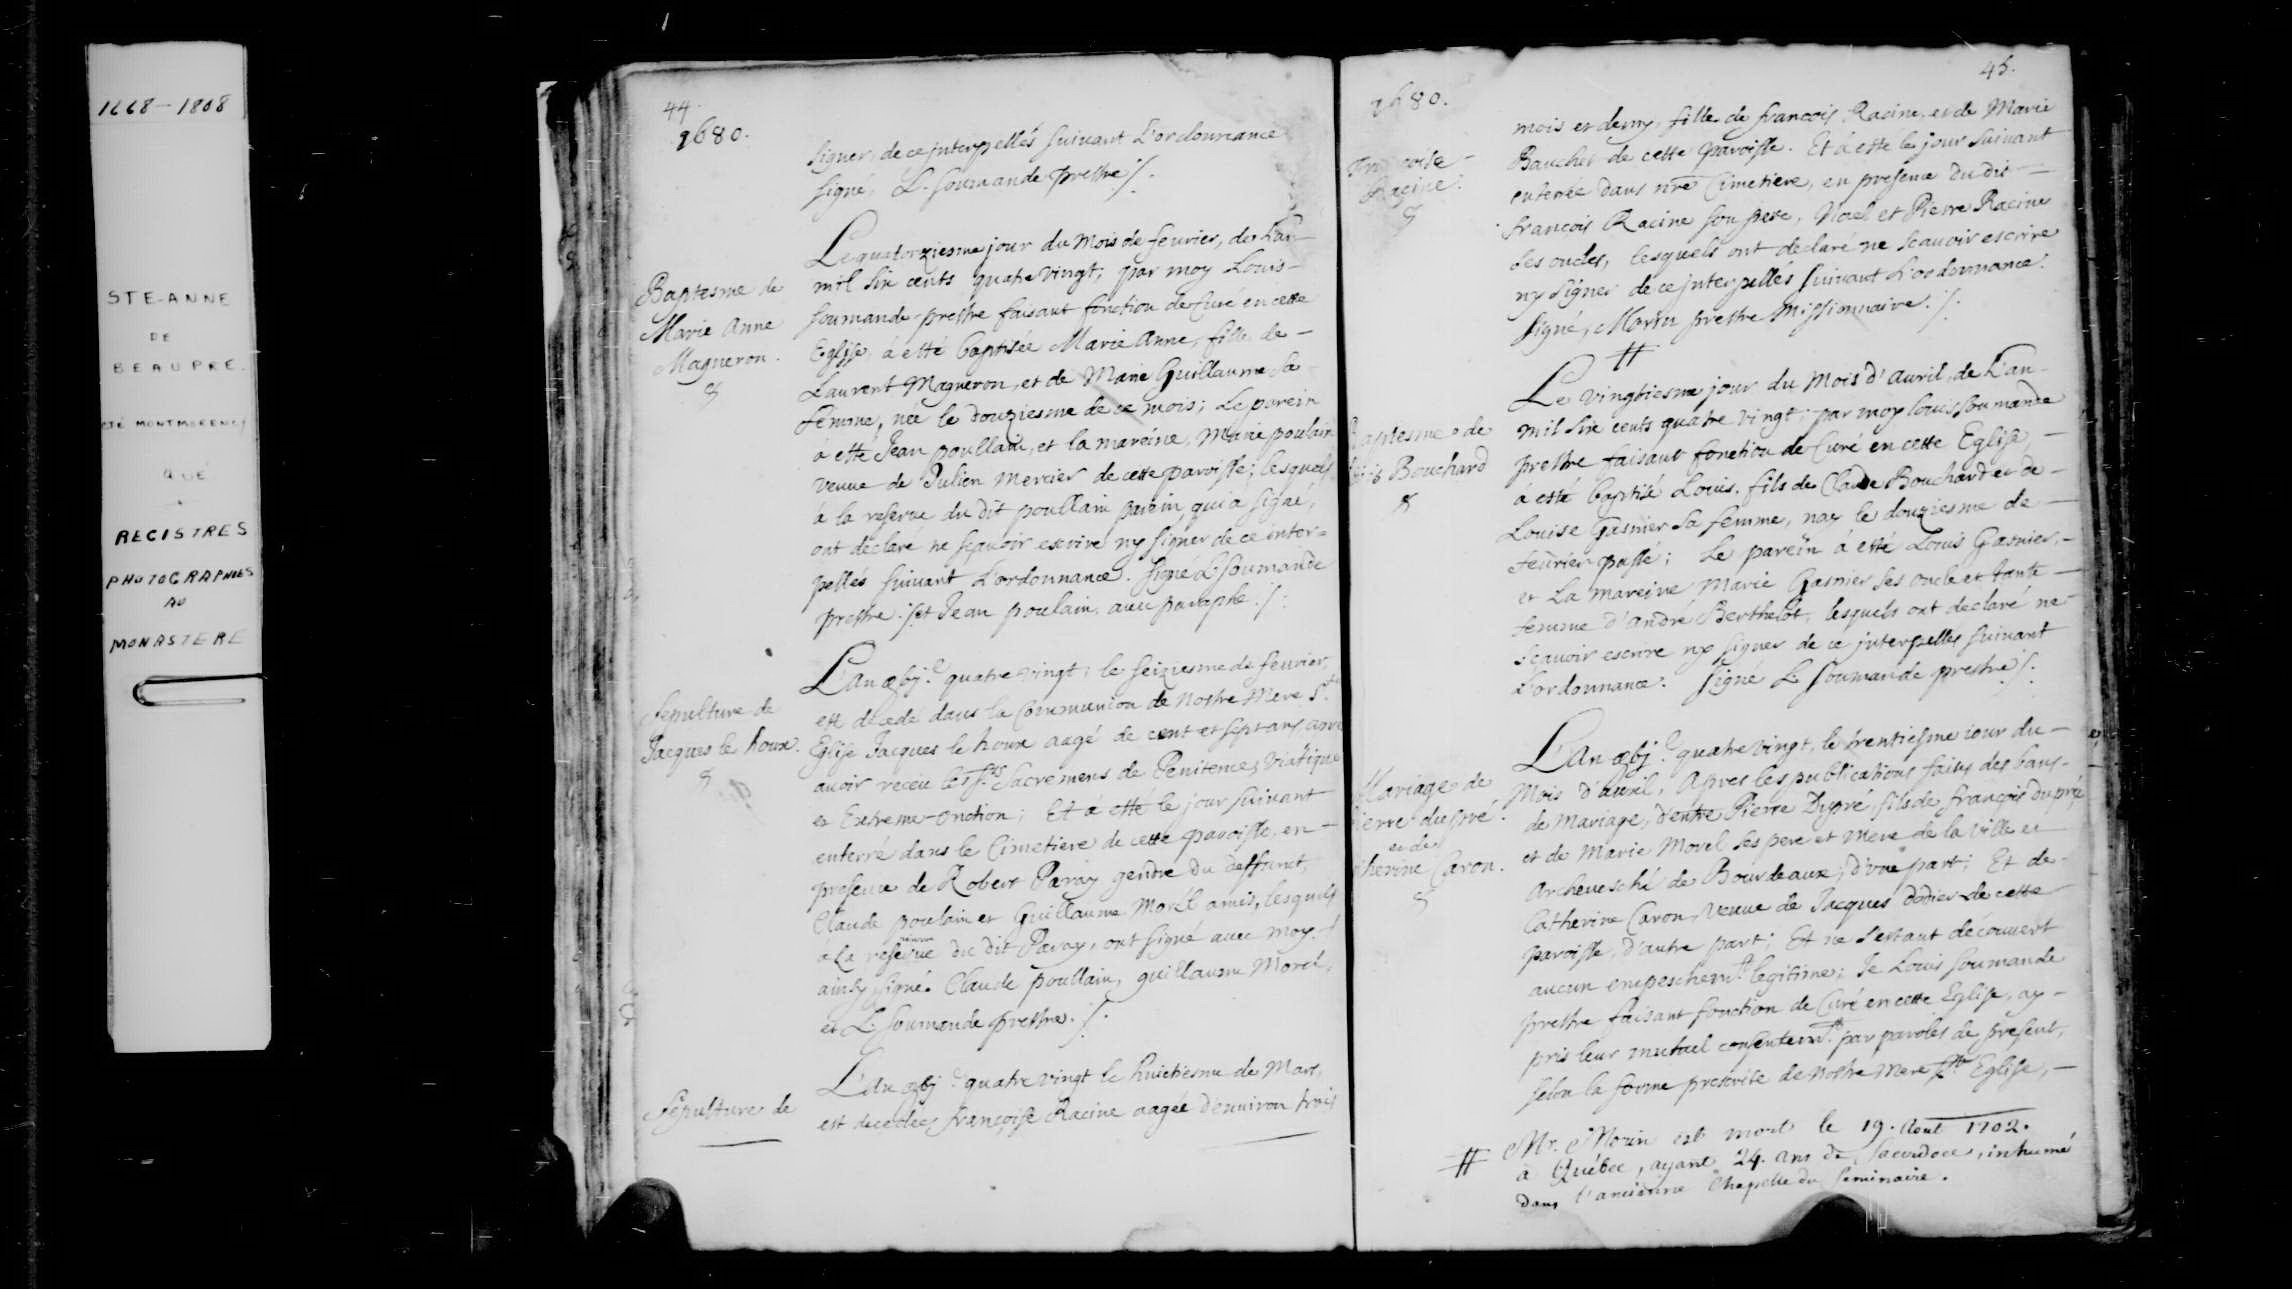 1668-1808
STE-ANNE
DE
BEAUPRE.
CTÉ MONTMORENCY
QUÉ
REGISTRES
PHOTOGRAPHIÉS
AU
MONASTERE
44.
1680.
signer, de ce jnterpellés suivant L'ordonnance
signé, L. soumande prestre ./.
Baptesme de
Marie Anne
Magneron.
Le quatorziesme jour du Mois de feurier, de L'an
mil six cents quatre vingt; par moy Louis
soumande prestre faisant fonction de Curé en cette
Eglise, á esté baptisée Marie Anne, fille de
Laurent Magneron, et de Marie Guillaume sa
femme, née le douziesme de ce mois; Le parein
á esté Jean poullain, et la mareine, Marie poulain
veuue de Julien Mercier de cette paroisse; lesquels
á la reserue du dit poullain parein, qui a signé,
ont declaré ne sçauoir escrire ny signer de ce inter=
pellés suivant L'ordonnance. signé L. soumande
prestre ./. et Jean poulain. auec paraphe ./.
Sepulture de
Jacques le houx.
L'an mvjc quatre vingt, le seiziesme de feurier,
est décedé dans la Communion de Nostre Mere Ste
Eglise Jacques le houx aagé de cent et sept ans apres
auoir receu les sts Sacremens de Penitence, Viatique
et Extreme-onction; Et á esté le jour suivant
enterré dans le Cimetiere de cette paroisse, en
presence de Robert Paray gendre du deffunct,
Claude poulain et Guillaume Morél amis, lesquels
á La reserue du dit Paray, ont signé auec moy.
ainsy signé. Claude poullain, guillaume Morel,
et L. soumande prestre ./.
Sepulture de
L'An mvjc quatre vingt le huictiesme de Mars,
est decedée, françoise Racine aagée d'enuiron trois
45.
1680.
mois et demy, fille de francois Racine, et de Marie
Bauchet de cette paroisse. Et á esté le jour suivant
Racine.
enterée dans nre Cimetiere, en presence du dit
francois Racine son pere, Noel et Pierre Racine
ses oncles, lesquels ont declaré ne scauoir escrire
ny signer de ce jnterpellés suivant L'ordonnance.
signé, Morin prestre Missionnaire ./.
#
Baptesme de
Louis Bouchard
Le vingtiesme jour du Mois d'auril, de L'an
mil six cents quatre vingt; par moy louis soumande
prestre faisant fonction de Curé en cette Eglise,
á esté baptisé Louis, fils de Claude Bouchard et de
Louise Gasnier sa femme, nay le douziesme de
feurier passé; Le parein á esté Louis Gasnier,
et La mareine Marie Gasnier ses oncle et tante
femme d'andré Berthelot, lesquels ont declaré ne
sçauoir escrire ny signer de ce jnterpellés suivant
L'ordonnance. signé L. Soumande prestre ./.
Mariage de
Pierre dupré.
et de
Catherine Caron.
L'An mvjc quatre vingt, le trentiesme iour du
Mois d'auril, Apres les publications faites des bans
de Mariage, d'entre Pierre Dupré, fils de françois dupré
et de Marie Morel ses pere et mere de la ville et
Archeuesché de Bourdeaux, d'vne part; Et de
Catherine Caron, Veuue de Jacques dodier de cette
paroisse, d'autre part; Et ne s'estant découuert
aucun empeschemt legitime; Je Louis soumande
prestre faisant fonction de Curé en cette Eglise, ay
pris leur mutuel consentemt par paroles de present,
selon la forme prescrite de nostre mere Ste Eglise,
# Mr. Morin est mort le 19. Aout 1702.
á Québec, ayant 24. ans de Sacerdoce, inhumé
dans l'ancienne Chapelle du Seminaire.